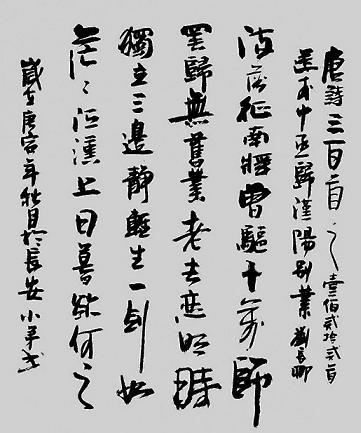 唐詩三百首之壹佰貳拾貳首
送李中丞歸漢陽別業劉長卿
流落征南將曾驅十萬師
罷歸無舊業老去恋明時
獨立三邊靜輕生一剑知
茫〻江漢上日暮欲何之
歲在庚寅年秋月於長安小